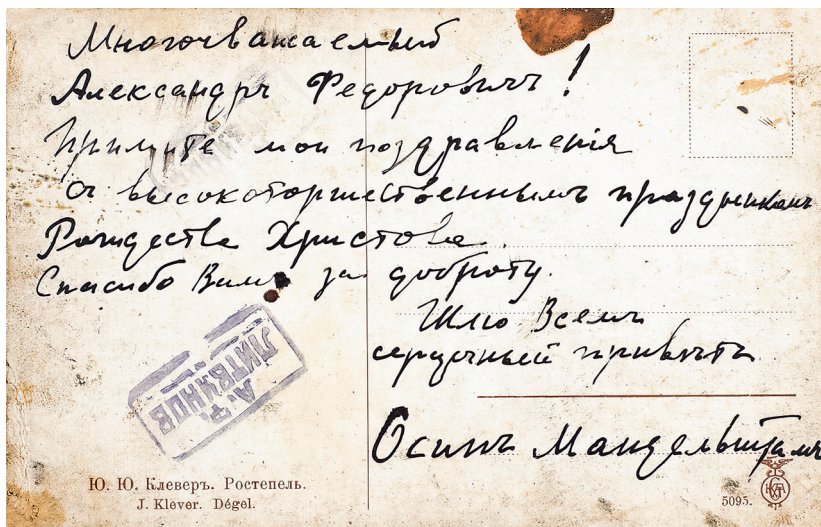 Многоуважаемый
Александръ Федоровичъ!
Примите мои поздравленія
съ высокоторжественнымъ праздникомъ
Рождества Христова.
Спасибо Вамъ за доброту.
Шлю Всемъ
сердечный привѣтъ
Осипъ Мандельштамъ
А. Ф.
ЛИТВИНОВ
Ю. Ю. Клеверъ. Ростепель.
J. Klever. Dégel.
5095.